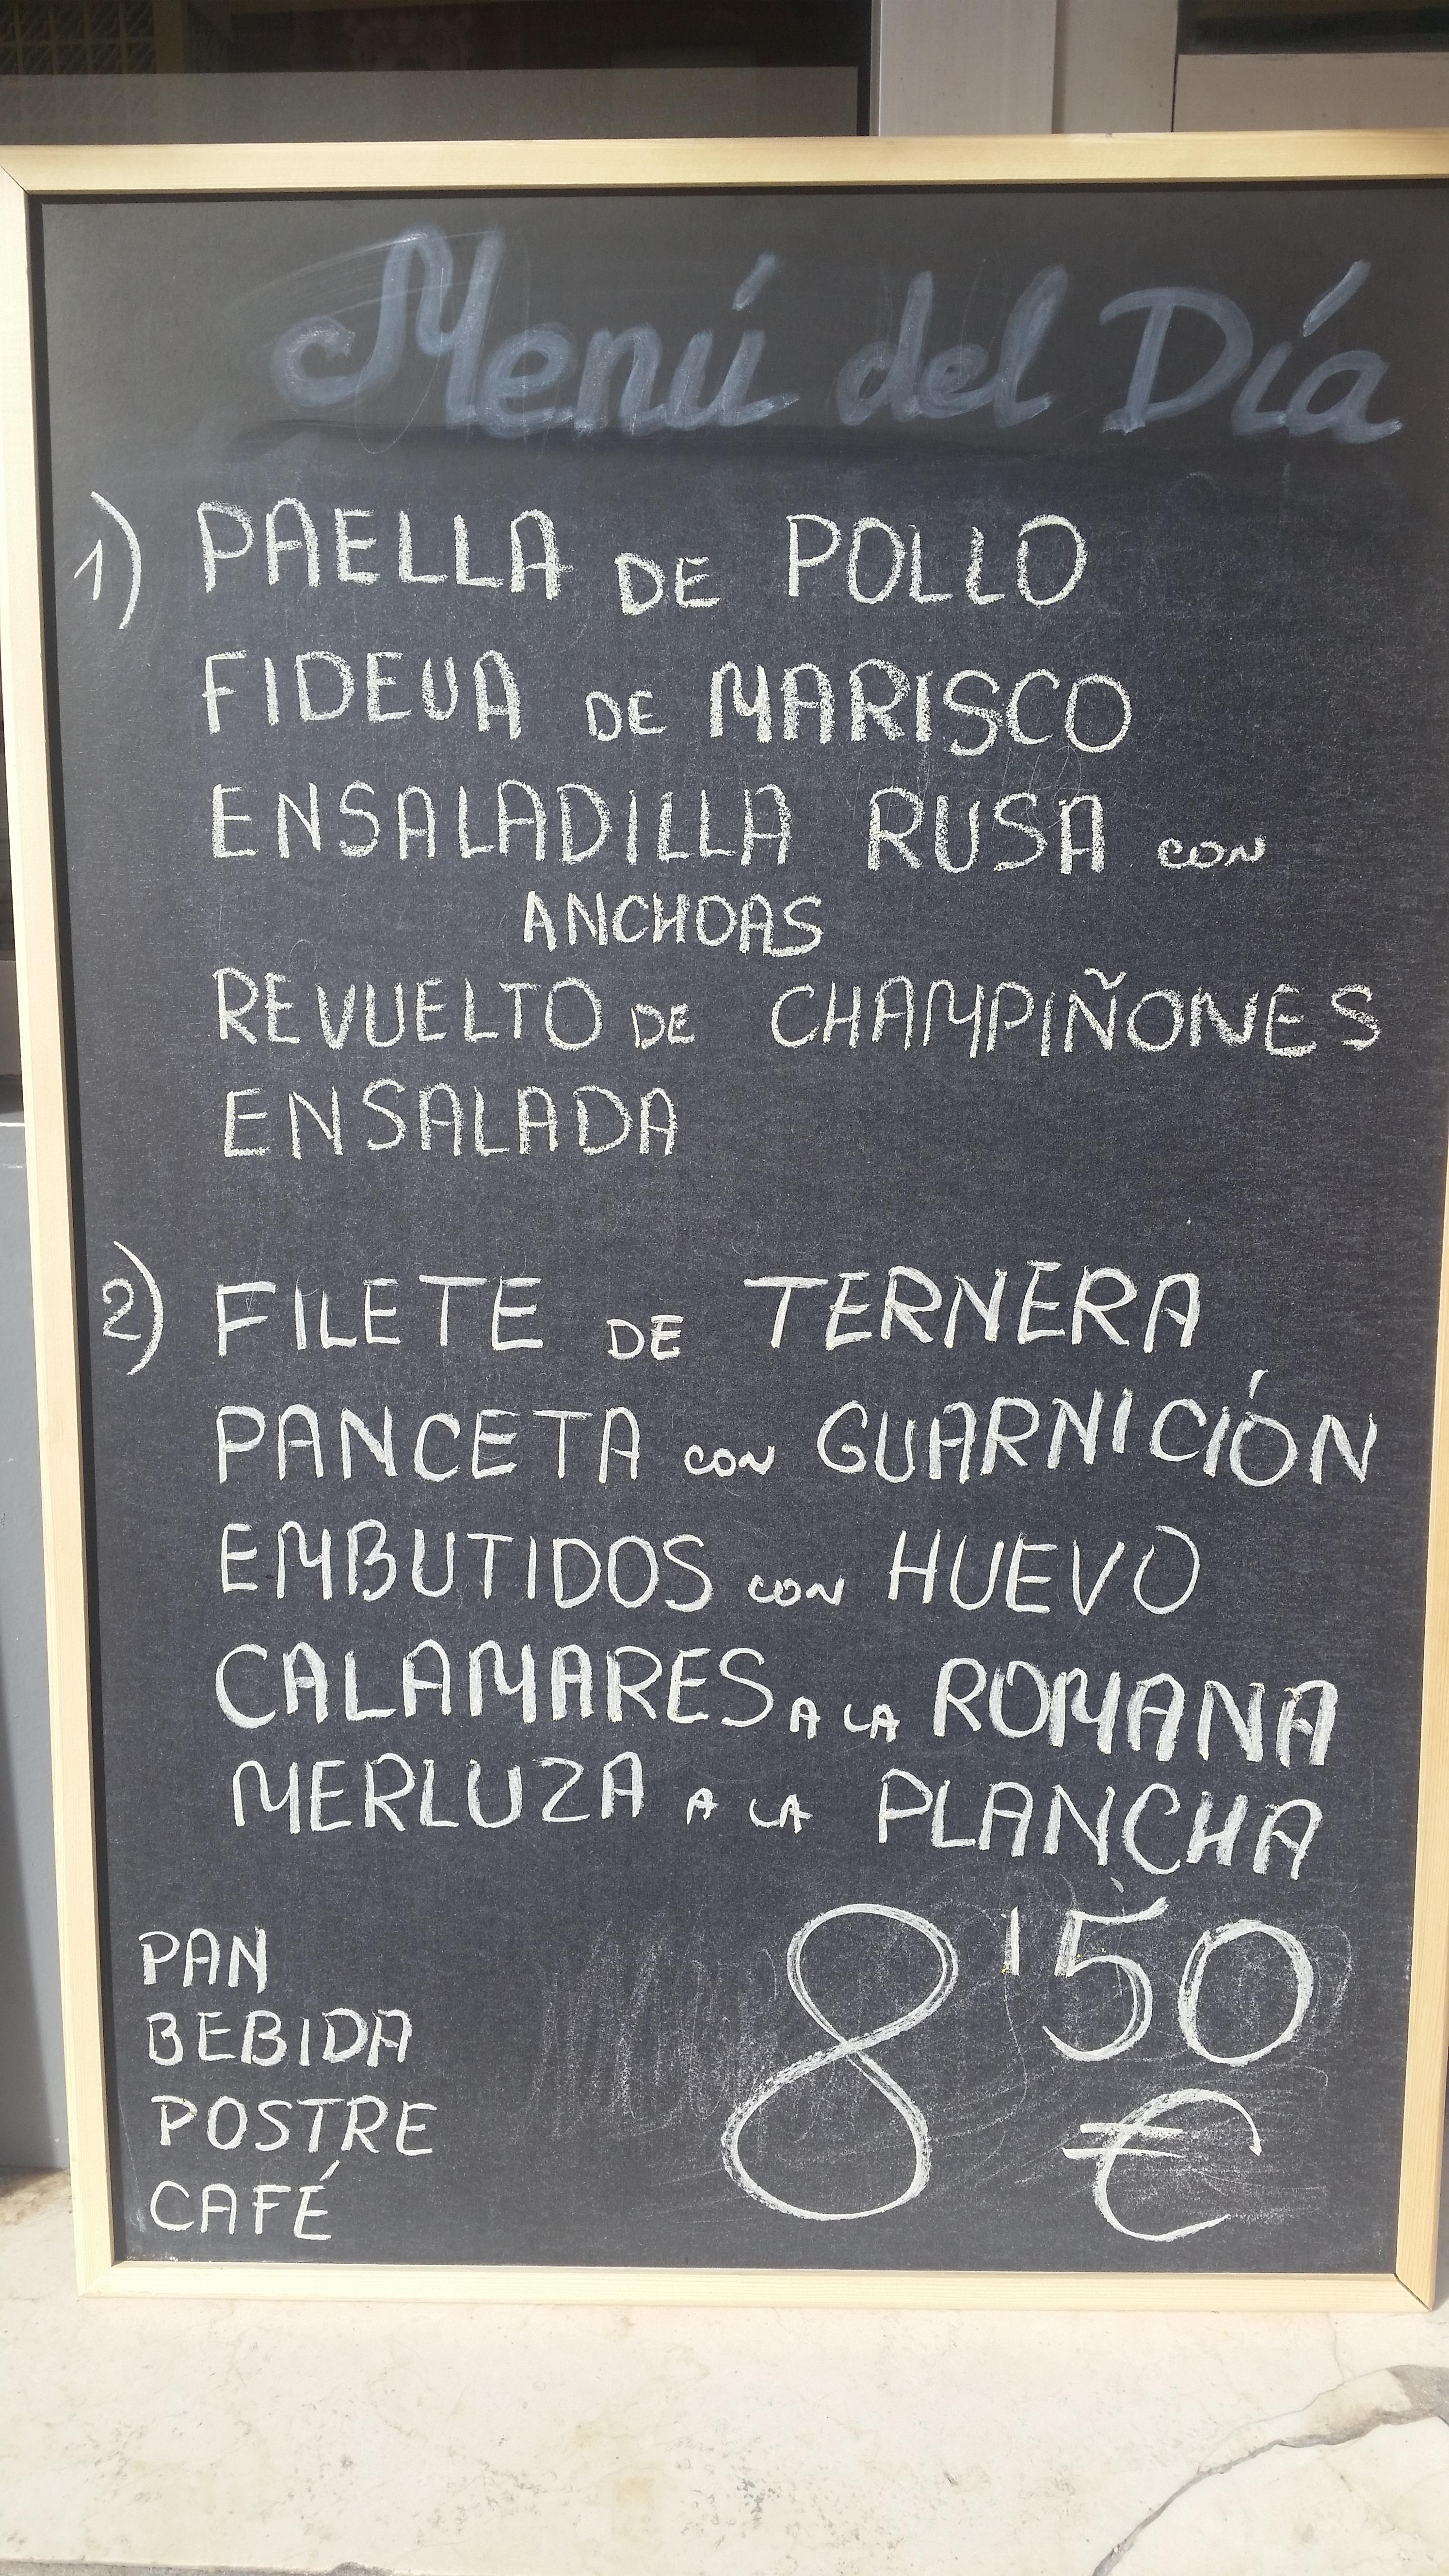 Menú del Día
1) PAELLA DE POLLO
FIDEUA DE MARISCO
ENSALADILLA RUSA CON
ANCHOAS
REVUELTO DE CHAMPIÑONES
ENSALADA
2) FILETE DE TERNERA
PANCETA CON GUARNICIÓN
EMBUTIDOS CON HUEVO
CALAMARES A LA ROMANA
MERLUZA A LA PLANCHA
PAN
BEBIDA
POSTRE
CAFÉ
8'50
€